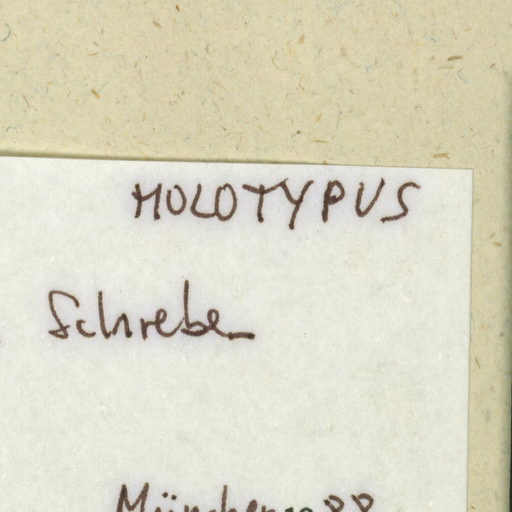 HOLOTYPUS
Schreber
München